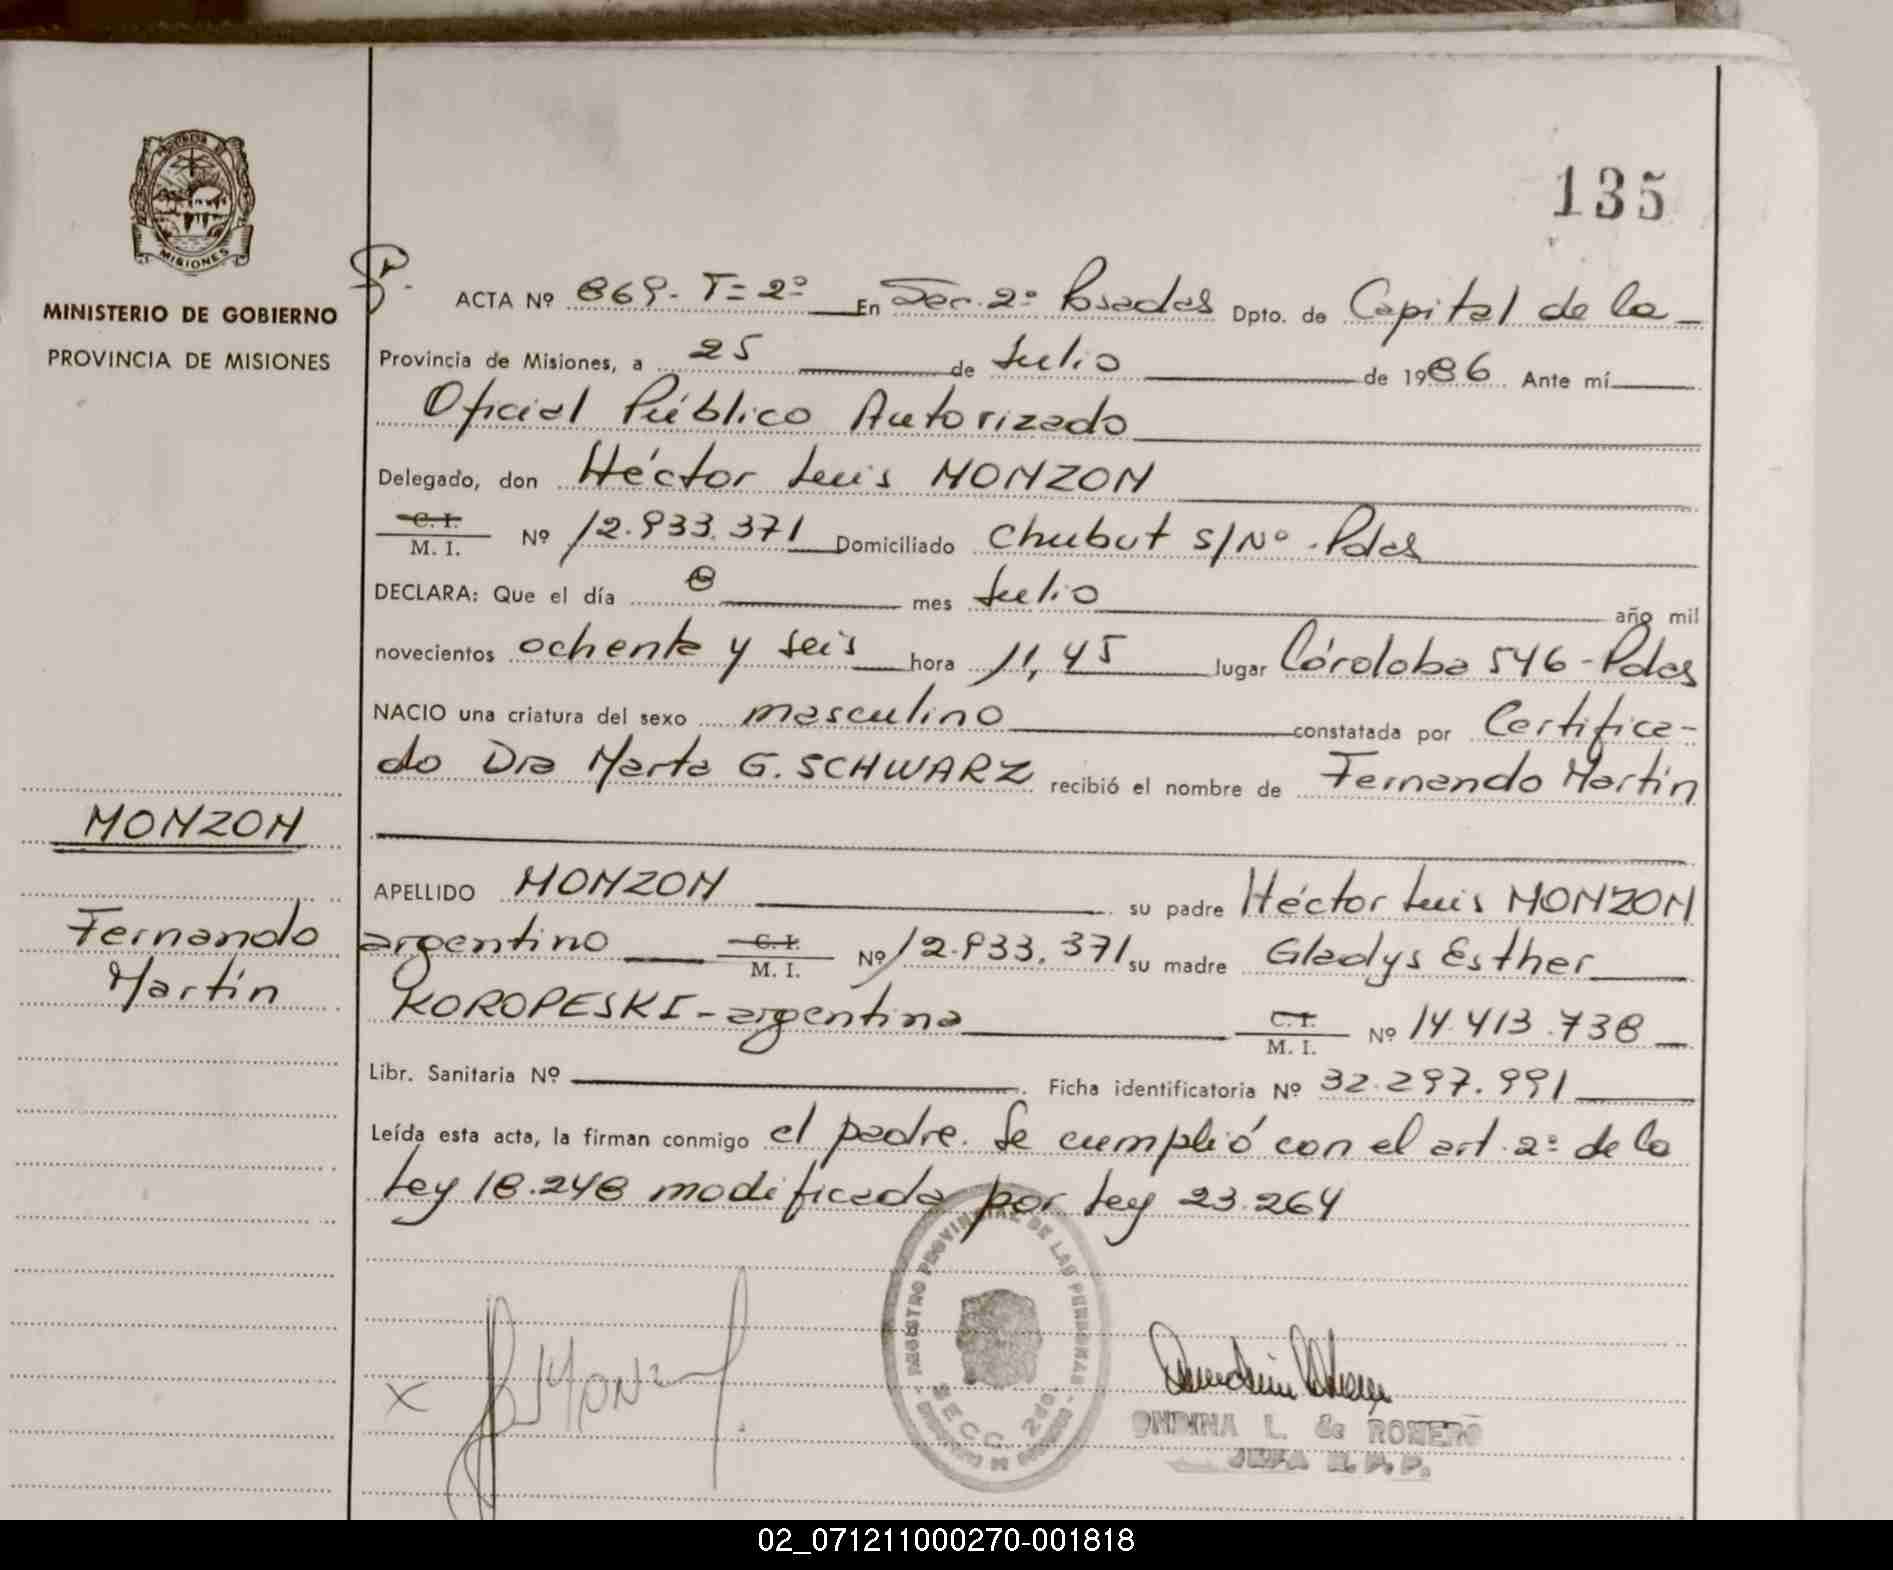 135
MISIONES
MINISTERIO DE GOBIERNO
PROVINCIA DE MISIONES
ACTA Nº 869- T=2º En Sec. 2º Posadas Dpto. de Capital de la
Provincia de Misiones, a 25 de Julio de 1986 Ante mí
Oficial Público Autorizado
Delegado, don Héctor Luis MONZON
C. I.
M. I. Nº 12.933.371 Domiciliado Chubut S/Nº.-Pdas
DECLARA: Que el día 8 mes Julio año mil
novecientos ochenta y seis hora 11,45 lugar Córdoba 546-Pdas
NACIO una criatura del sexo masculino constatada por Certifica-
do Dra Marta G. SCHWARZ recibió el nombre de Fernando Martín
MONZON
Fernando
Martín
APELLIDO MONZON su padre Héctor Luis MONZON
argentino C. I. M. I. Nº 12.933.371 su madre Gladys Esther
KOROPESKI-argentina C. I. M. I. Nº 14.413.738
Libr. Sanitaria Nº . Ficha identificatoria Nº 32.297.991
Leída esta acta, la firman conmigo el padre. Se cumplió con el art. 2º de la
Ley 18.248 modificada por Ley 23.264
REGISTRO PROVINCIAL DE LAS PERSONAS
SECC. 2da.
X
ONDINA L. de ROMERO
JEFA R.P.P.
02_071211000270-001818